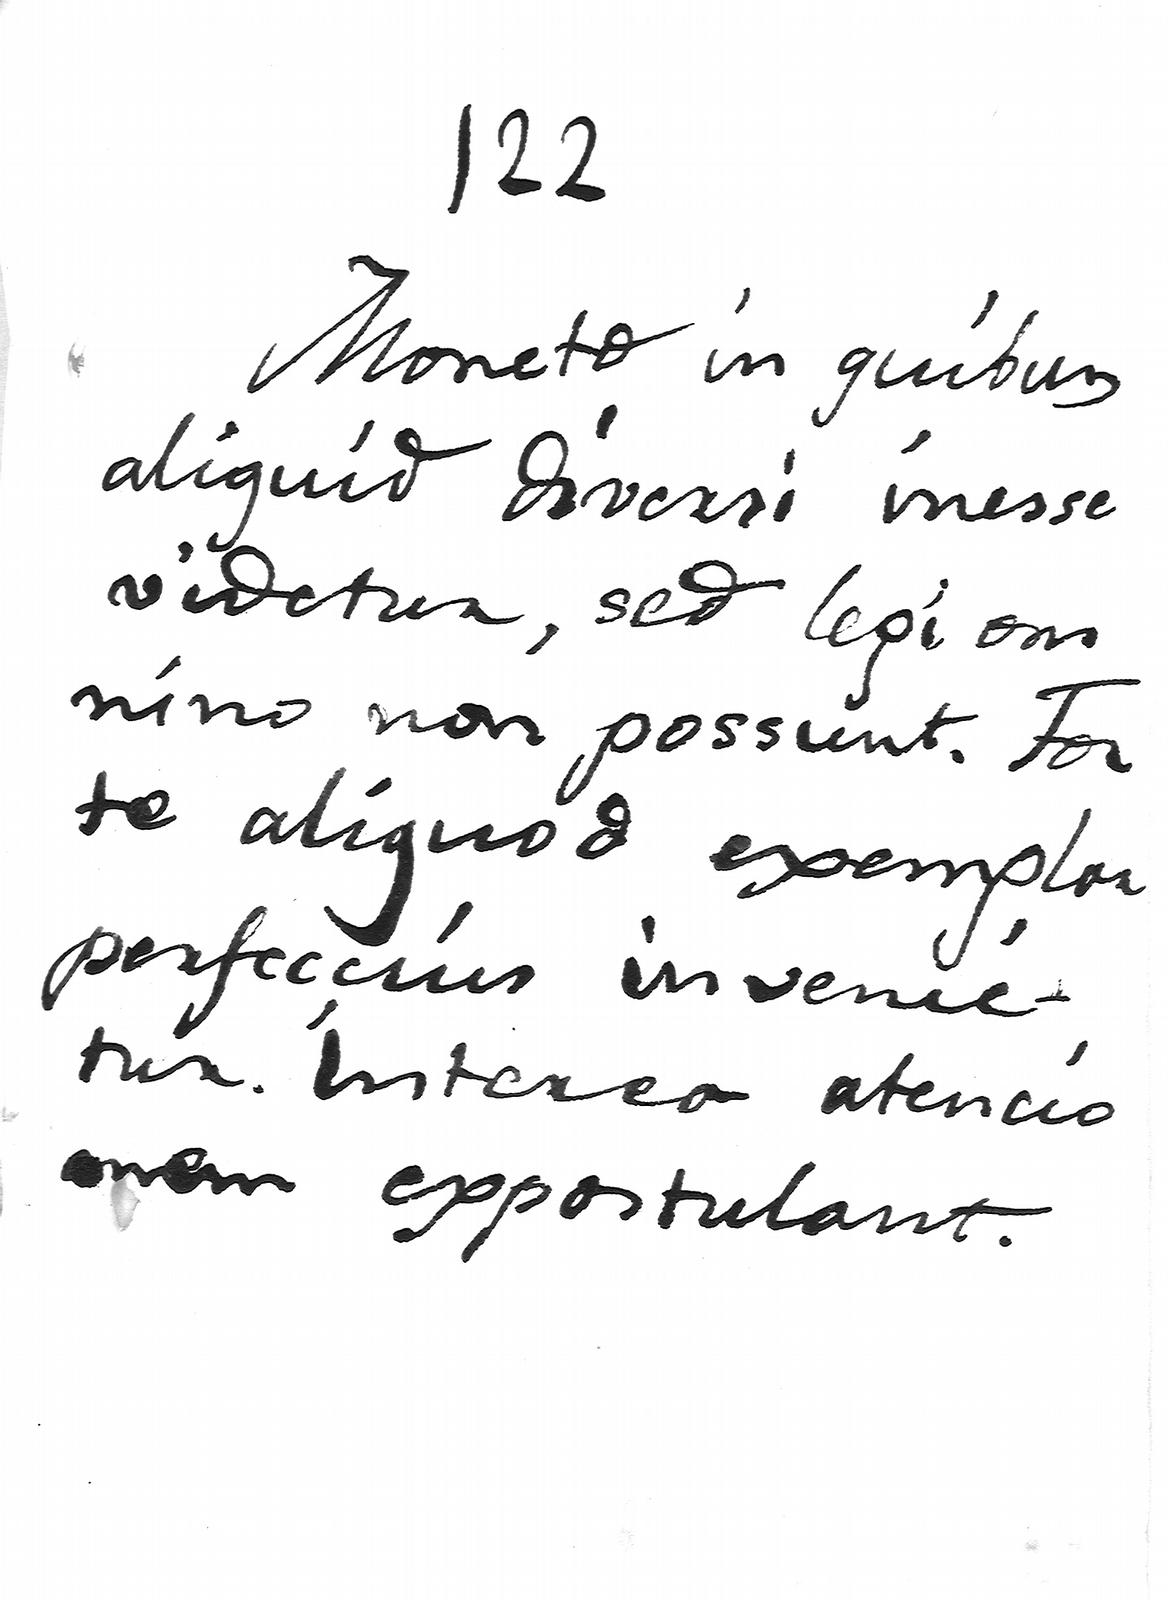 122
Moneta in quibus
aliquid diversi inesse
videtur, sed legi om
nino non possunt. For
te aliquod exemplar
perfeccius invenie-
tur. Interea atencio
onem expostulant.